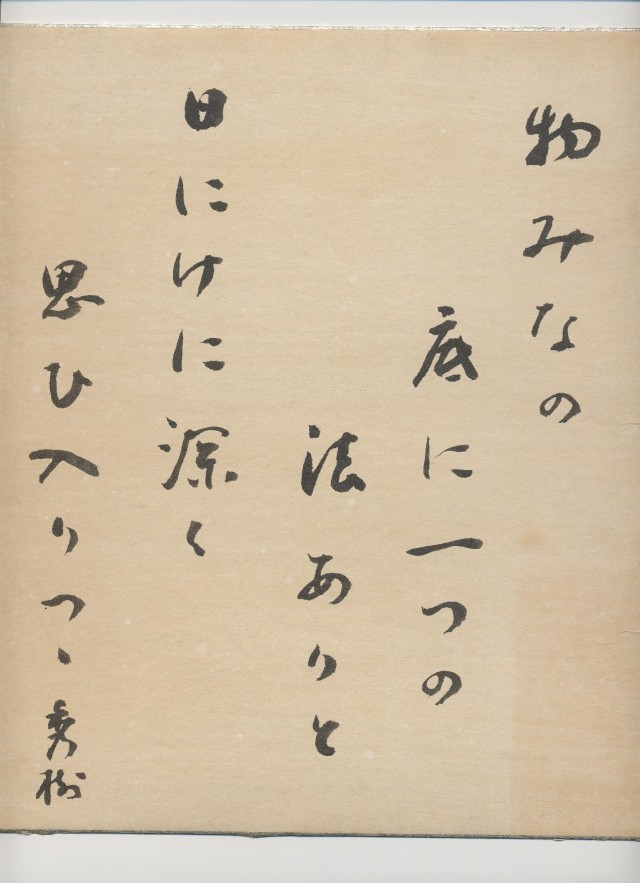 物みなの
底に一つの
法ありと
日にけに深く
思ひ入りつゝ 秀樹